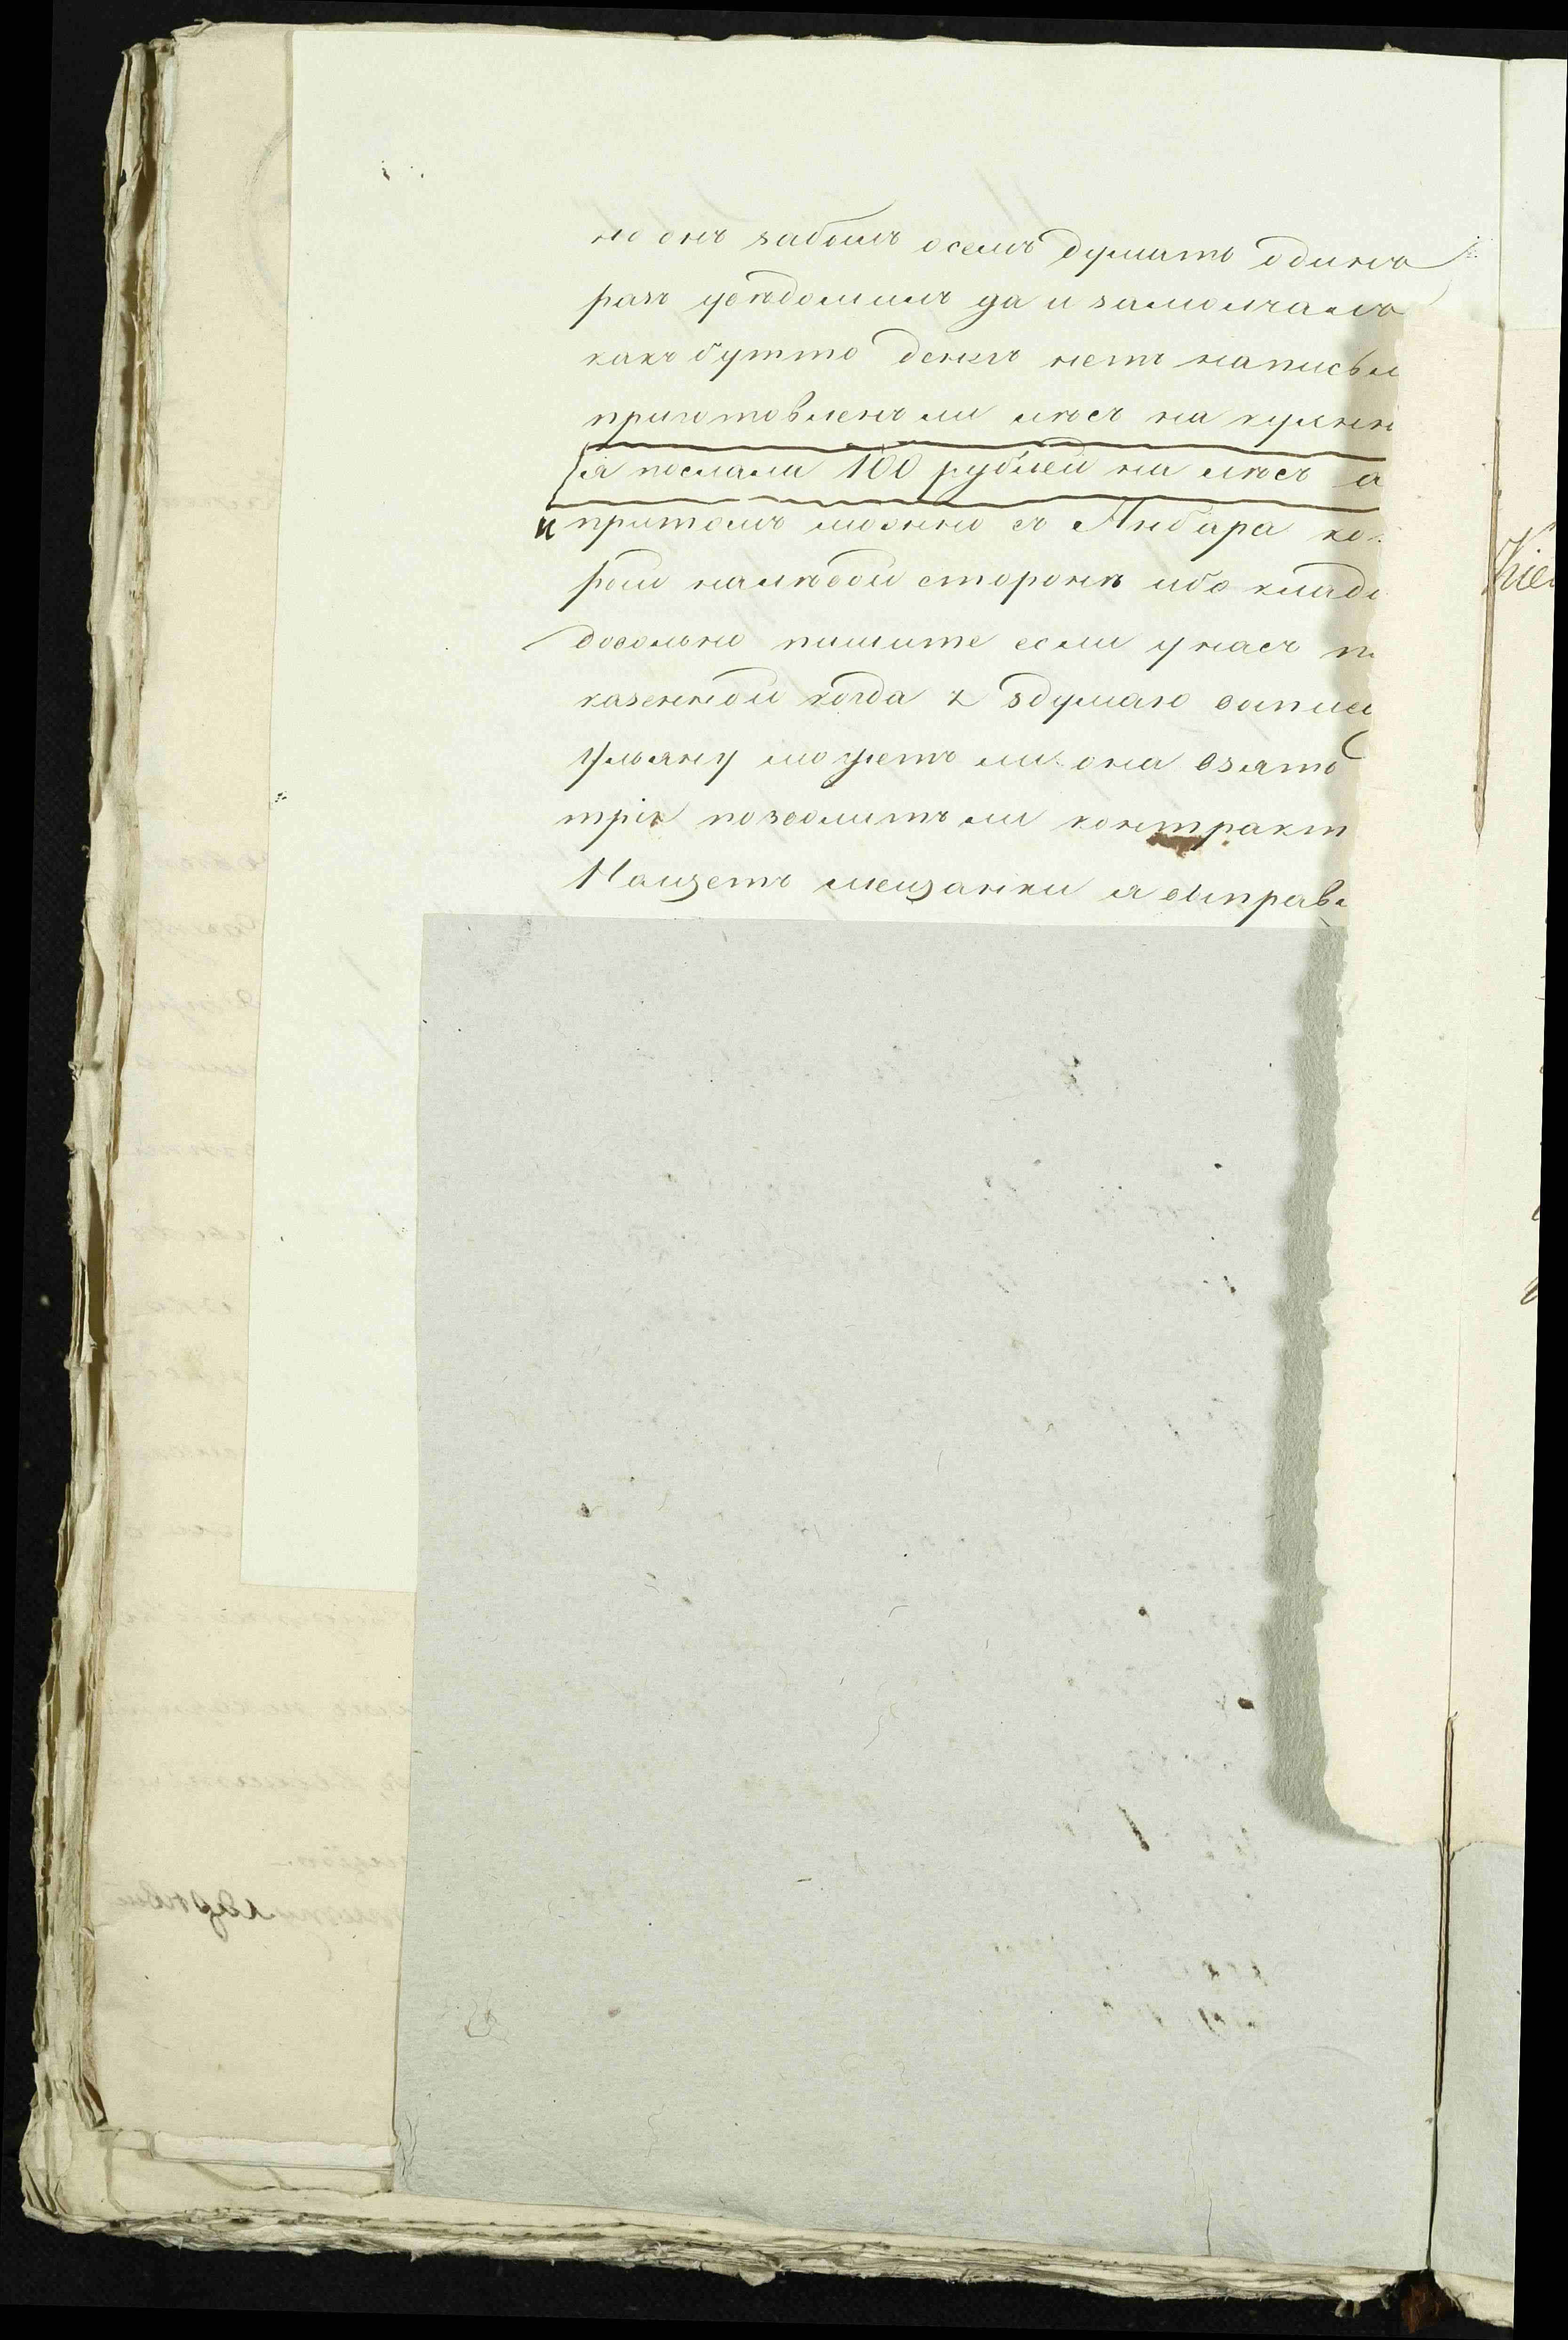 но онъ забылъ всемъ думать одинъ
разъ уведомилъ да и замолчалъ
какъ бутто денегъ нетъ написал
приготовленъ ли лѣсъ на кухню
а послали 100 рублей на лѣсъ а
и притомъ можно съ Анбара ко
рой налѣвой сторонѣ ибо кладо
довольно пишите если у насъ п
казенной когда я вдумаю запис
Ульяну можетъ ли она взять
трія позволитъ ли контракт
Нащетъ мещанки я выправ
Кіе